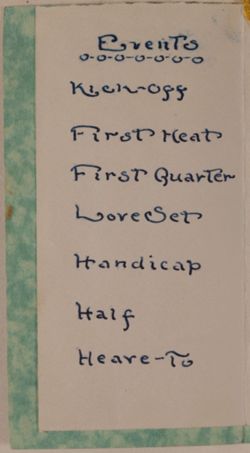 Events
Kick-Off
First Heat
First Quarter
Love Set
Handicap
Half
Heave-To